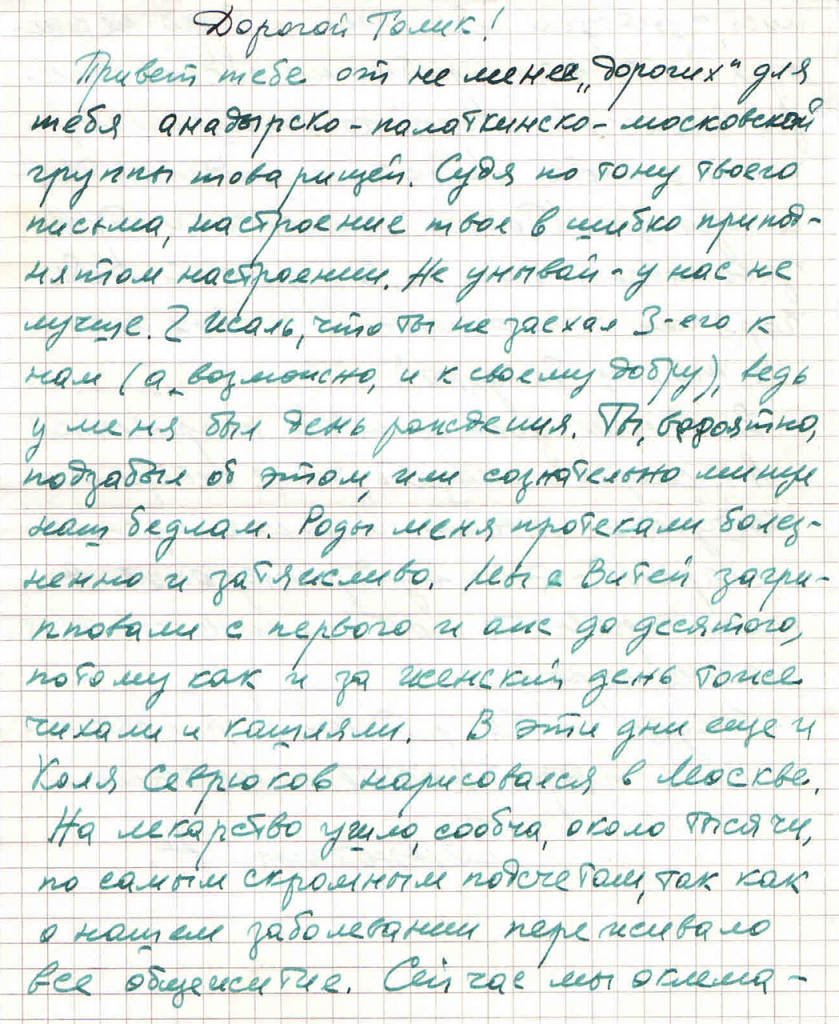 Дорогой Толик!
Привет тебе от не менее „дорогих“ для
тебя анадырско-палаткинско-московской
группы товарищей. Судя по тону твоего
письма, настроение твое в шибко припод-
нятом настроении. Не унывай - у нас не
лучше. Жаль, что ты не заехал 3-его к
нам (а, возможно, и к своему добру), ведь
у меня был день рождения. Ты, вероятно,
подзабыл об этом, или сознательно минуя
наш бедлам. Роды меня протекали болез-
ненно и затяжливо. Мы с Витей загри-
пповали с первого и аж до десятого,
потому как и за женский день тоже
чихали и кашляли. В эти дни еще и
Коля Севрюков нарисовался в Москве.
На лекарство ушло, сообча, около тысячи,
по самым скромным подсчетам, так как
о нашем заболевании переживало
все общежитие. Сейчас мы оклема-